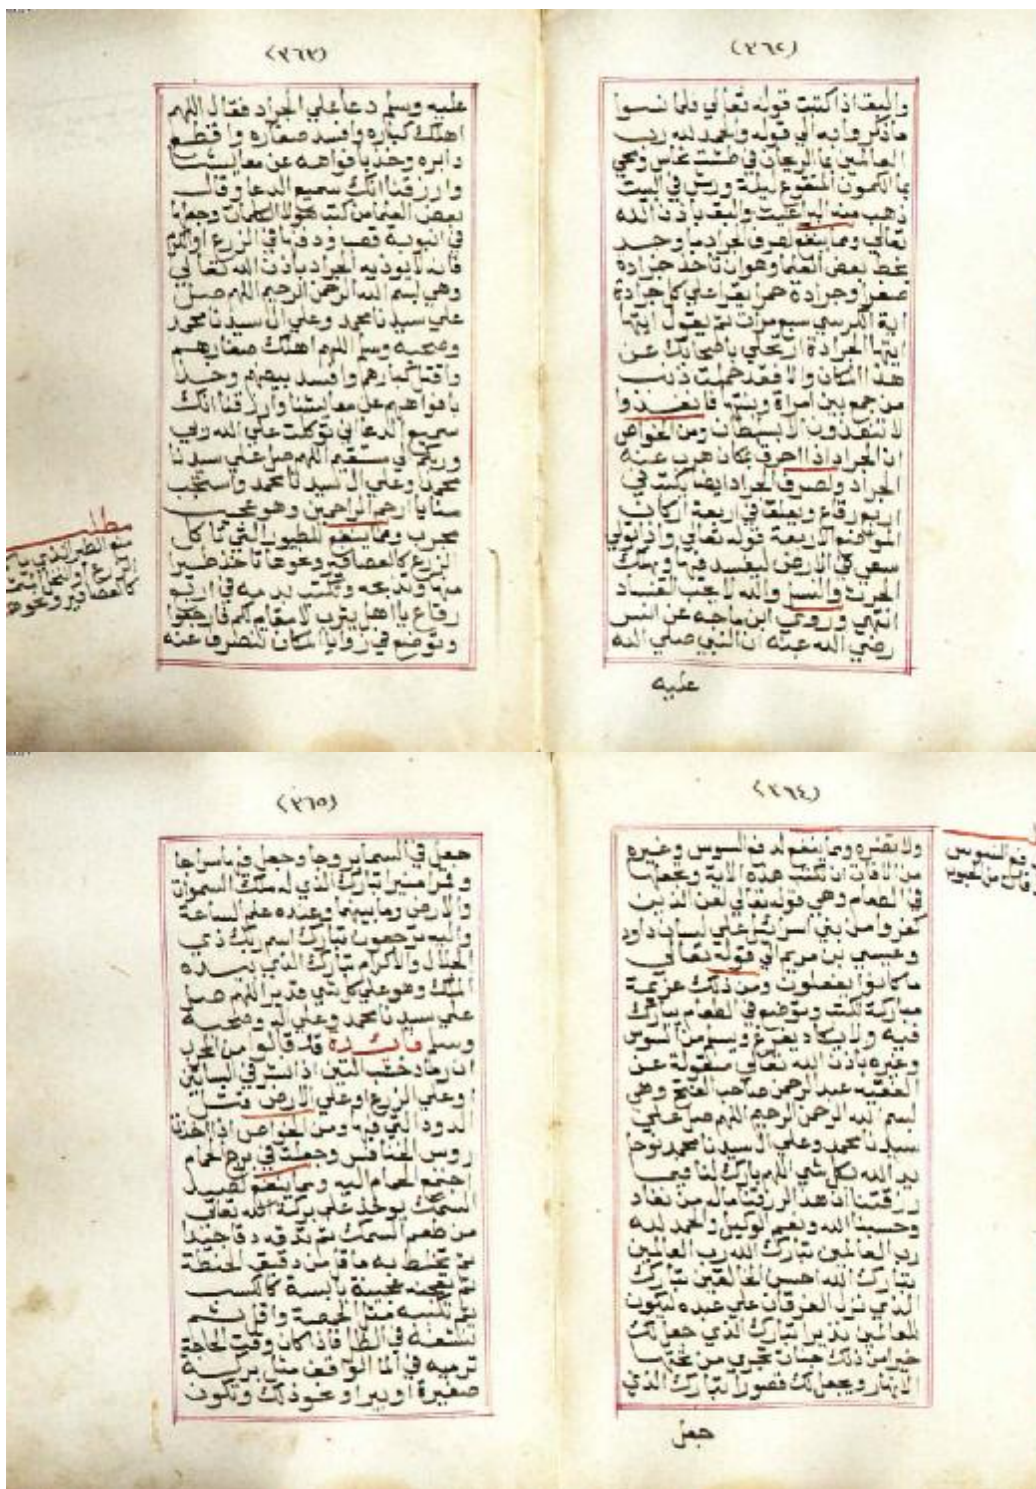 (٣٦٢)
والبق اذا كتبت قوله تعالي فلما نسوا
ما ذكروا به الي قوله والحمد لله رب
العالمين بما الريحان في طشت نحاس ومحي
بما الكمون المنقوع ليلة ورش في البيت
ذهب منه البراغيث والبق باذن الله
تعالي ومما ينفع لصرف الجراد ما وجد
بخط بعض العلما وهو ان تاخذ جرادة
صفرا وجرادة حمرا يقرا علي كل جرادة
اية الكرسي سبع مرات ثم يقول ايتها
ايتها الجرادة ارتحلي باصحابك عن
هذا المكان والا فقد حملت ذنب
من جمع بين امراة وبنتها فانفذوا
لا تنفذون الا بسلطان ومن الخواص
ان الجراد اذا احرق بمكان هرب عنه
الجراد ولصرف الجراد ايضا يكتب في
اربع رقاع ويعلق في اربعة اركان
الموضع الاربعة قوله تعالي واذا تولي
سعي في الارض ليفسد فيها ويهلك
الحرث والنسل والله لا يحب الفساد
انتهي وروي ابن ماجه عن انس
رضي الله عنه ان النبي صلي الله
عليه
(٣٦٣)
عليه وسلم دعا علي الجراد فقال اللهم
اهلك كباره وافسد صغاره واقطع
دابره وخذ بافواهه عن معايشنا
وارزقنا انك سميع الدعا وقال
بعض العلما من كتب هولا الكلمات وجعلها
في انبوبة قصب ودفنها في الزرع او الكرم
فانه لا يوذيه الجراد باذن الله تعالي
وهي بسم الله الرحمن الرحيم اللهم صل
علي سيدنا محمد وعلي ال سيدنا محمد
وصحبه وسلم اللهم اهلك صغارهم
واقتل كبارهم وافسد بيضهم وخذ
بافواههم عن معايشنا وارزقنا انك
سميع الدعا اني توكلت علي الله ربي
وربكم مستقيم اللهم صل علي سيدنا
محمد وعلي ال سيدنا محمد واستجب
منا يا ارحم الراحمين وهو عجيب
مجرب ومما ينفع للطيور التي تاكل
الزرع كالعصافير ونحوها تاخذ طيرا
منها وتذبحه وتكتب بدمه في اربع
رقاع يا اهل يثرب لا مقام لكم فارجعوا
وتوضع في زوايا المكان تنصرف عنه
مطلب
منع الطير الذي
الزرع او
كالعصافير ونحوها
(٣٦٤)
ولا تقربه ومما ينفع لدفع السوس وغيره
من الافات ان تكتب هذه الاية وتجعل
في الطعام وهي قوله تعالي لعن الذين
كفروا من بني اسرائيل علي لسان داود
وعيسي بن مريم الي قوله تعالي
ما كانوا يفعلون ومن ذلك عزيمة
مباركة تكتب وتوضع في الطعام يبارك
فيه ولا يكاد يفرغ ويسلم من السوس
وغيره باذن الله تعالي منقولة عن
الفقيه عبد الرحمن صاحب الفتح وهي
بسم الله الرحمن الرحيم اللهم صل علي
سيدنا محمد وعلي ال سيدنا محمد
الله بكل شي اللهم بارك لنا فيما
رزقتنا ان هذا لرزقنا ماله من نفاد
وحسبنا الله ونعم الوكيل والحمد لله
رب العالمين تبارك الله رب العالمين
تبارك الله احسن الخالقين تبارك
الذي نزل الفرقان علي عبده ليكون
للعالمين نذيرا تبارك الذي جعل لك
خيرا من ذلك جنات تجري من تحتها
الانهار ويجعل لك قصورا تبارك الذي
جعل
دفع السوس
(٣٦٥)
جعل في السما بروجا وجعل فيها سراجا
وقمرا منيرا تبارك الذي له ملك السموات
والارض وما بينهما وعنده علم الساعة
واليه ترجعون تبارك اسم ربك ذي
الجلال والاكرام تبارك الذي بيده
الملك وهو علي كل شي قدير اللهم صل
علي سيدنا محمد وعلي اله وصحبه
وسلم فائدة قد قالوا من المجرب
ان رماد خشب التين اذا نثر في البساتين
او علي الزرع او علي الارض قتل
الدود التي فيه ومن الخواص اذا اخذت
روس الخنافس وجعلت في برج الحمام
اجتمع الحمام اليه ومما ينفع لصيد
السمك يوخذ علي بركة الله تعالي
من طعم السمك ثم تدقه دقا جيدا
ثم تخلط به ما قل من دقيق الحنطة
ثم تعجنه عجينة يابسة كالكسب
ثم تكببه مثل الحمصة واقل ثم
تنشفه في الظل فاذا كان وقت الحاجة
ترميه في الما الواقف مثل بركة
صغيرة او بير او نحو ذلك وتكون